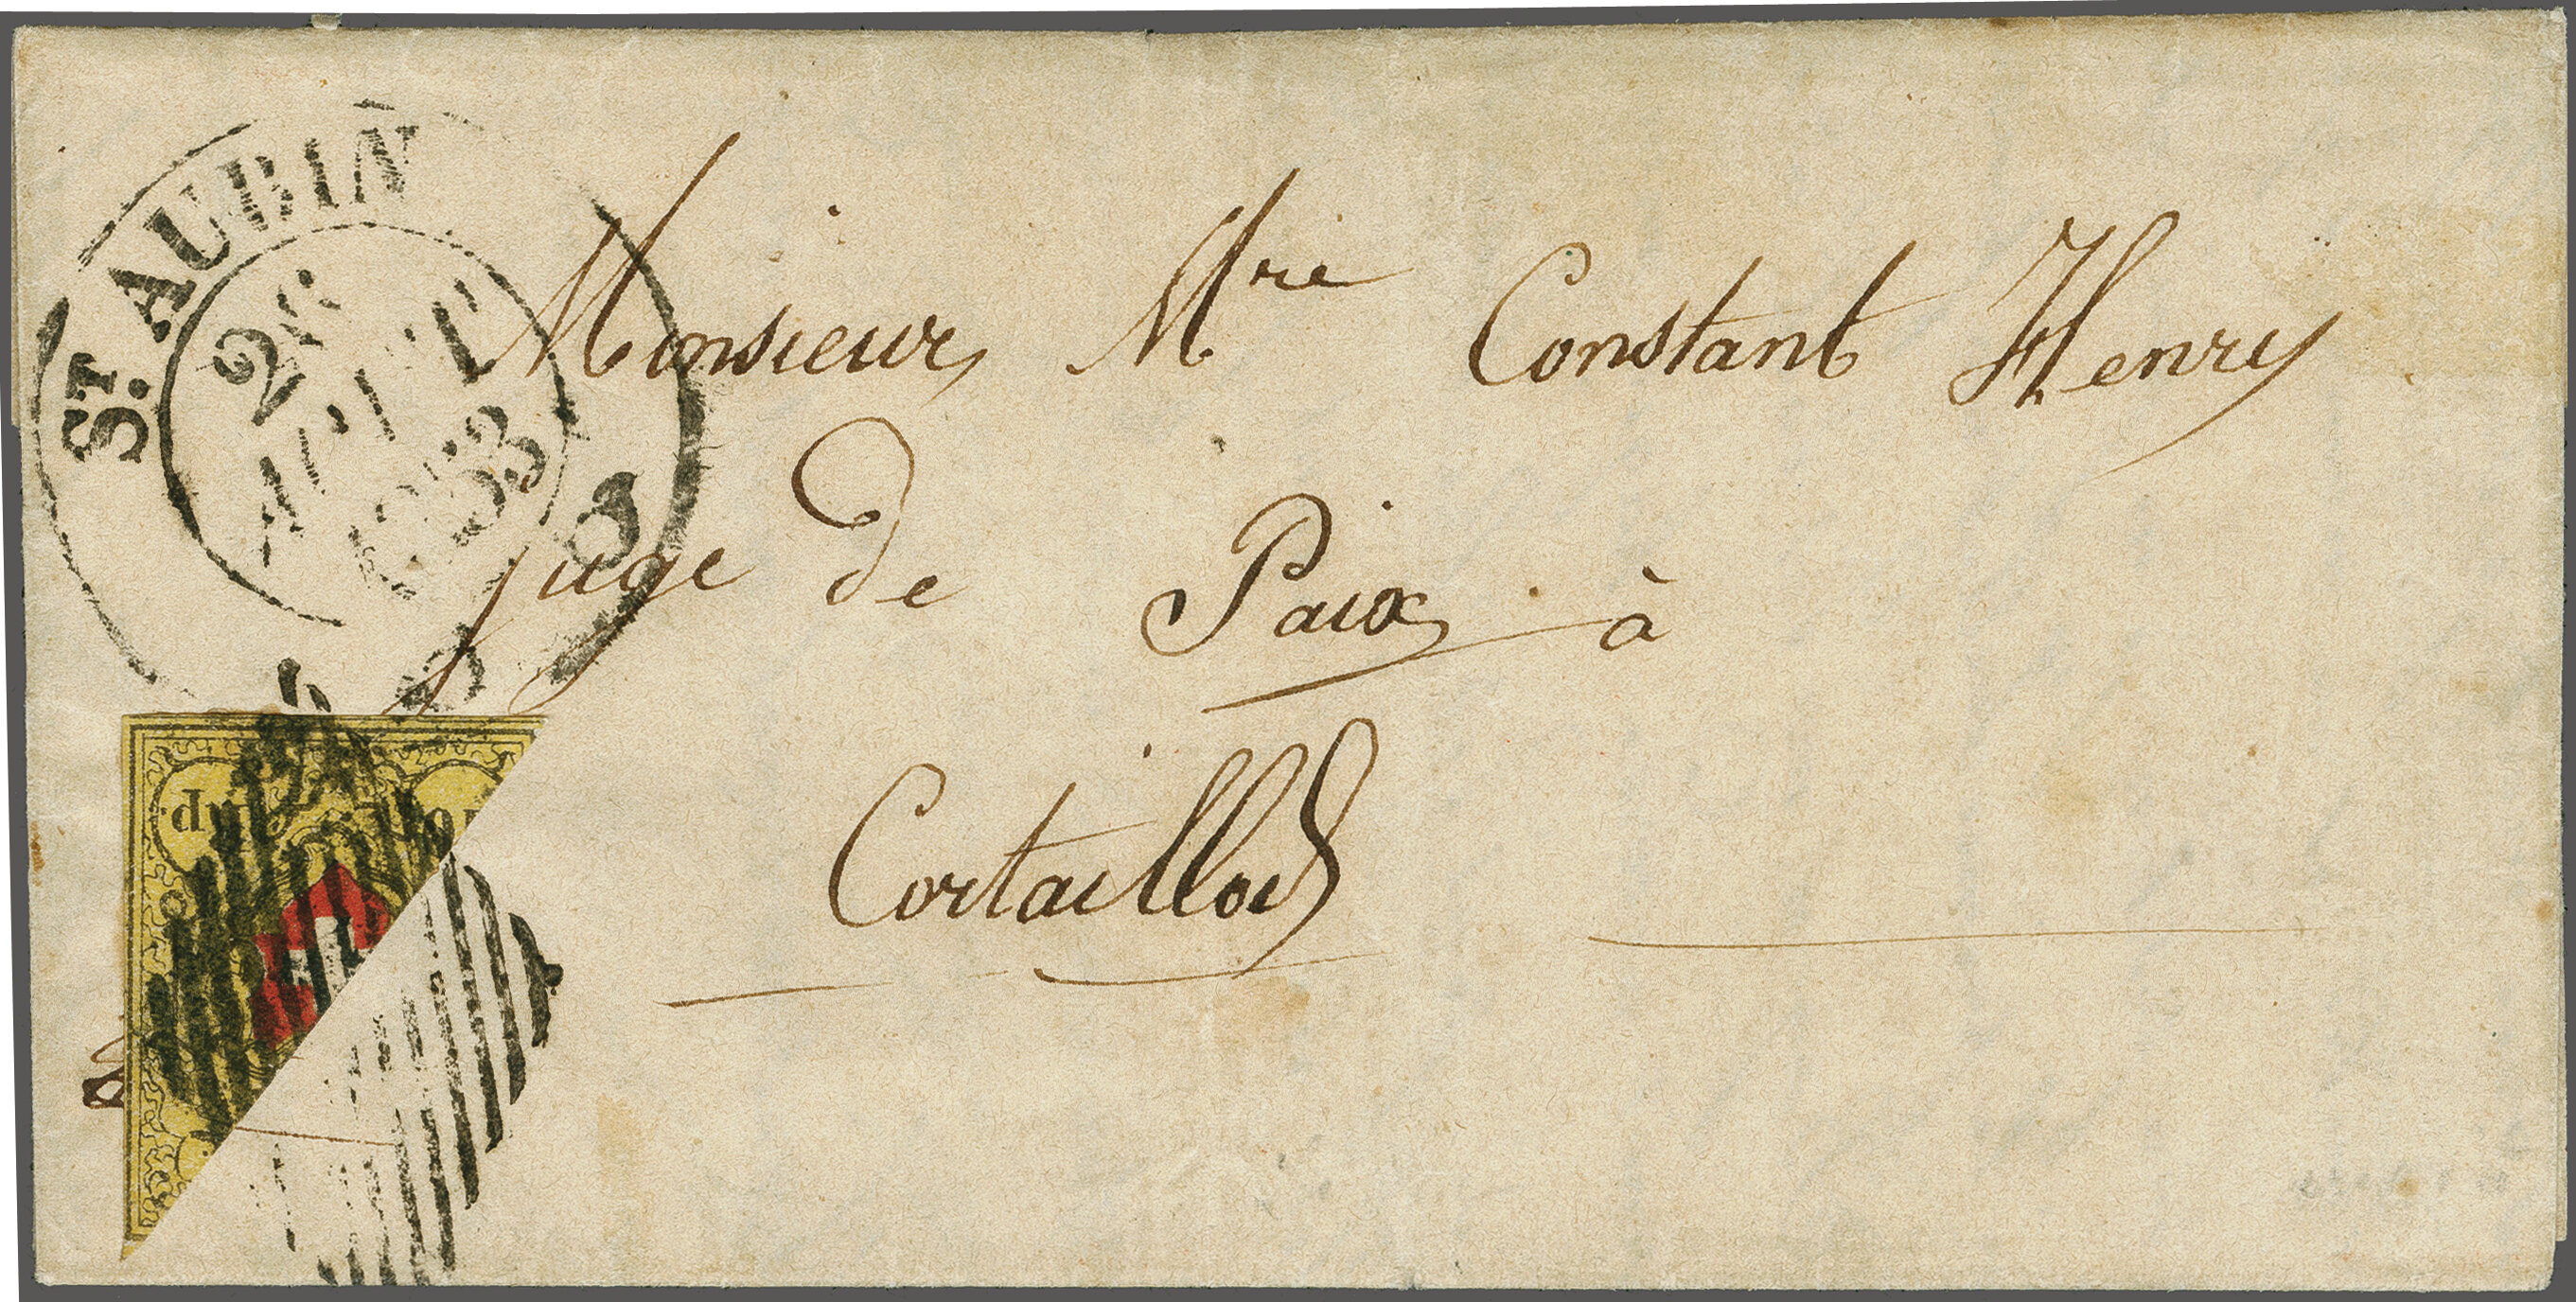 ST. AUBIN
26
AOUT
1853
Monsieur Mre Constant Henry
juge de Paix à
Cortaillod